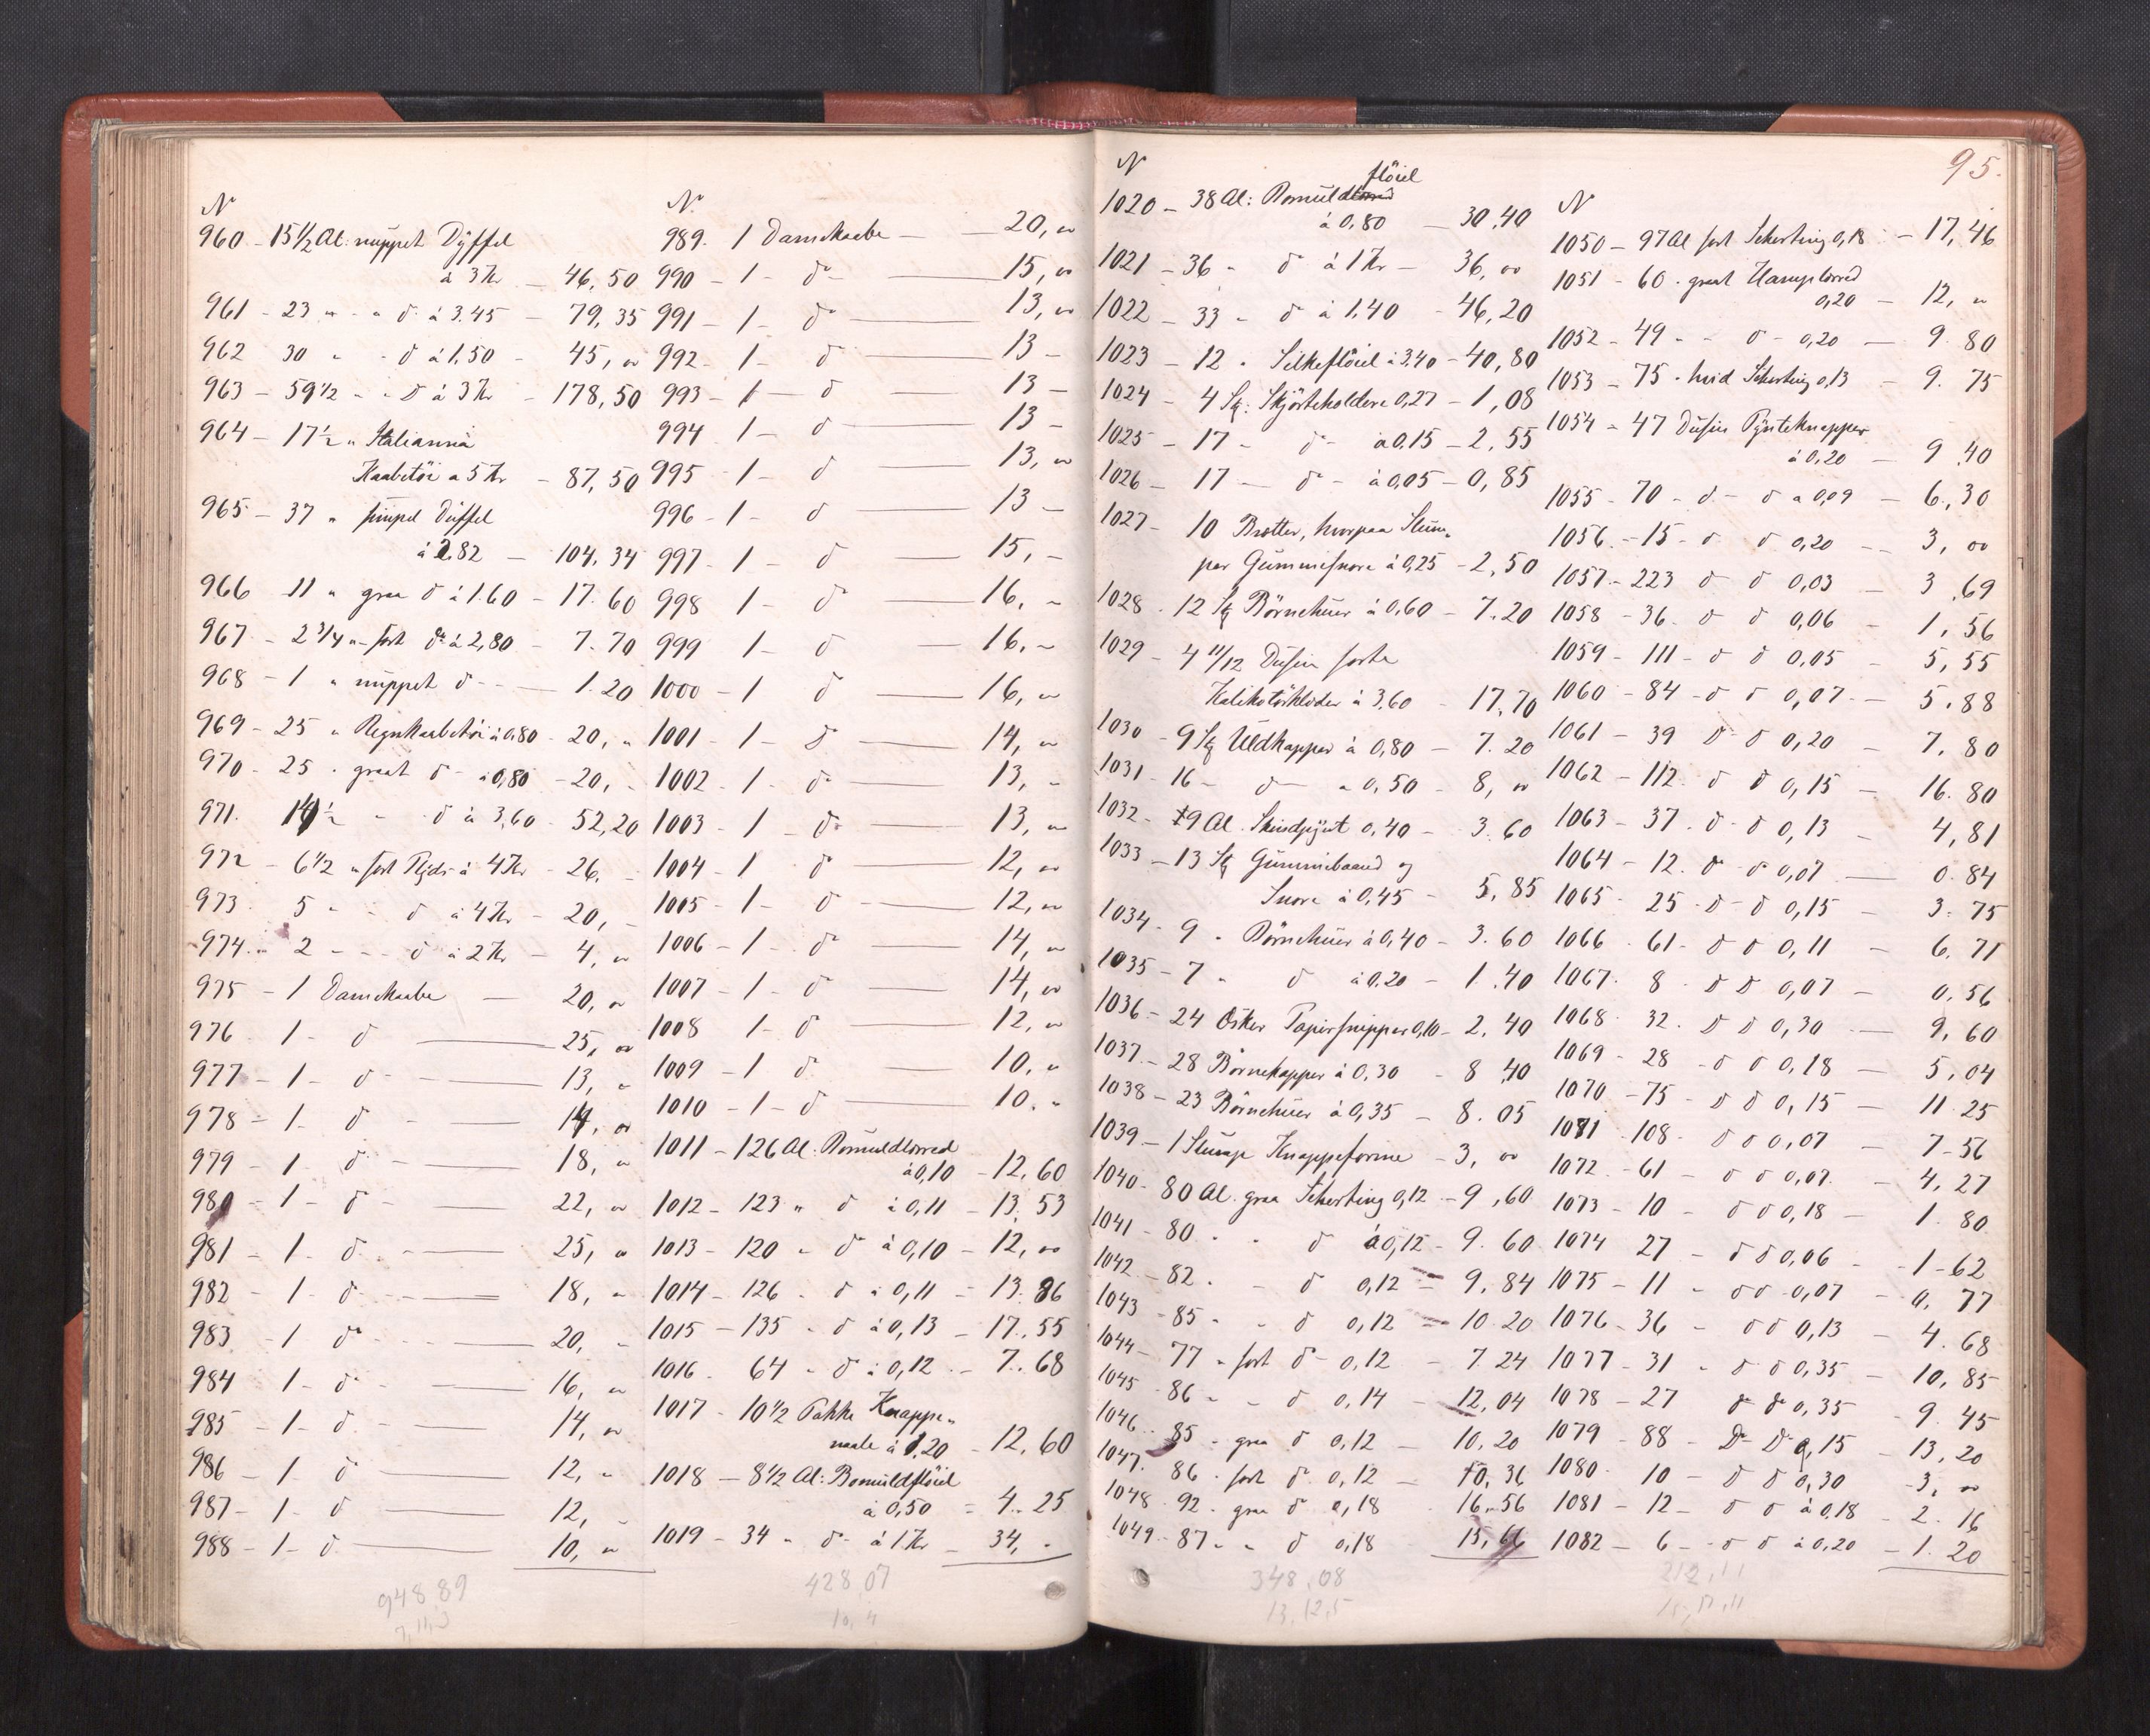 N
960 - 15 1/2 Al: nuppet Dyffel
à 3 Kr - 46,50
961 - 23 " - " do à 3.45 - 79,35
962 30 " - do à 1,50 - 45, "
963 - 59 1/2 " - do à 3 Kr - 178,50
964 - 17 1/2 " Italianna
Kaabetöi a 5 Kr - 87,50
965 - 37 " simpel Duffel
à 2.82 - 104,34
966 11 " graa do à 1.60 - 17.60
967 - 2 3/4 " - sort do à 2,80 - 7.70
968 - 1 " nuppet do - 1.20
969 - 25 " Regnkaabetöi à 0.80 - 20, "
970 - 25 " graat do - à 0,80 - 20, "
971. 14 1/2 " - do à 3,60 - 52,20
972 - 6 1/2 " sort à 4 Kr - 26. -
973 5 " - do à 4 Kr - 20, -
974 - 2 - - - do à 2 Kr - 4, "
975 - 1 Damekaabe - 20, "
976 - 1 - do - 25, oo
977 - 1 - do - 13, "
978 - 1 - do - 14, oo
979 - 1 - do - 18, "
980 - 1 - do - 22, "
981 - 1 - do - 25, "
982 - 1 - do - 18, "
983 - 1 do - 20, "
984 1 - do - 16, "
985 - 1 - do - 14, "
986 - 1 - do - 12, "
987 - 1 - do - 12, -
988 - 1 - do - 10, "
948,89
N.
989. 1 Damekaabe - 20, oo
990 - 1 - do - 15, oo
991 - 1 - do - 13, oo
992 - 1 - do - 13 -
993 - 1 - do - 13 -
994 1 - do - 13 -
995 - 1 - do - 13, oo
996 - 1 - do - 13 -
997 - 1 - do - 15, -
998 1 - do - 16, -
999 1 - do - 16, -
1000 - 1 do - 16, "
1001 - 1 - do - 14, "
1002 - 1 - do - 13, -
1003 - 1 - do - 13, "
1004 - 1 do - 12, "
1005 - 1 - do - 12, "
1006 - 1 - do - 14, "
1007 - 1 - do - 14, oo
1008 1 - do - 12, "
1009 - 1 do - 10, "
1010 - 1 - do - 10. "
1011 - 126 Al: Bomuldlorred
à 0,10 - 12,60
1012 - 123 " do à 0,11 - 13,53
1013 - 120 " do à 0,10 - 12, oo
1014 - 126 " do à 0,11 - 13.86
1015 - 135 " do à 0,13 - 17.55
1016 - 64 " do à 0,12 - 7.68
1017 - 10 1/2 Pakke Knappe-
naale à 1,20 - 12,60
1018 - 8 1/2 Al: Bomuldflöiel
à 0,50 - 4.25
1019 - 34 " do à 1 Kr - 34, -
428,07
10,4
95.
N
flöiel
1020 - 38 Al: Bomuldlorred
à 0,80 - 30,40
1021 - 36 " do à 1 Kr - 36, oo
1022 - 33 " do à 1,40 - 46,20
1023 - 12 " Silkeflöiel à 3.40 - 40,80
1024 - 4 St: Skjörteholdere 0,27 - 1,08
1025 - 17 - do - à 0.15 - 2,55
1026 - 17 - do - à 0,05 - 0,85
1027 - 10 Bretter, hvorpaa Stum-
per Gummisnore à 0,25 - 2,50
1028 - 12 St Börnehuer à 0,60 - 7.20
1029 - 4 11/12 Dusin sorte
Kalikotörklæder à 3,60 - 17,70
1030 - 9 St Uldkapper à 0,80 - 7.20
1031 - 16 - do - à 0,50 - 8, oo
1032 - 9 Al. Skindpynt 0,40 - 3.60
1033 - 13 St Gummibaand og
Snore à 0,45 - 5,85
1034 - 9 " Börnehuer à 0,40 - 3.60
1035 - 7 " do à 0.20 - 1.40
1036 - 24 Æsker Papirsnipper 0,10 - 2,40
1037 - 28 Börnekapper à 0,30 - 8,40
1038 - 23 Börnehuer à 0,35 - 8.05
1039 - 1 Stump Knappeforme - 3, oo
1040 - 80 Al. graa Scherting 0,12 - 9,60
1041 - 80 - " do à 0,12 - 9.60
1042 - 82 - - do 0,12 - 9.84
1043 - 85 - - do 0,12 - 10.20
1044 - 77 " sort do - 0,12 - 7.24
1045 - 86 " - do 0,14 - 12,04
1046 - 85 " graa do 0,12 - 10,20
1047. 86 " sort do 0,12 - 10,36
1048 - 92 " graa do 0,18 - 16,56
1049 - 87 " " do 0,18 - 15,66
348,08
13,12,5
N
1050 - 97 Al sort Schirting 0,18 - 17,46
1051 - 60 " graat Hamplorred
0,20 - 12, "
1052 - 49 " - do - 0,20 - 9.80
1053 - 75 " hvid Schirting 0,13 - 9.75
1054 - 47 Dusin Pynteknapper
à 0,20 - 9.40
1055 - 70 - do - do à 0,09 - 6,30
1056 - 15 - do do 0,20 - 3, oo
1057 - 223 do do 0,03 - 3,69
1058 - 36 - do do 0,06 - 1,56
1059 - 111 - do do 0,05 - 5,55
1060 - 84 - do do 0,07 - 5.88
1061 - 39 do do 0,20 - 7,80
1062 - 112 - do do 0,15 - 16.80
1063 - 37 - do - do 0,13 - 4,81
1064 - 12 - do - do 0,07 - 0.84
1065 - 25 - do - do 0,15 - 3.75
1066 - 61 - do do 0,11 - 6,71
1067 - 8 - do do 0,07 - 0,56
1068 - 32 - do do 0,30 - 9,60
1069 - 28 - do do 0,18 - 5,04
1070 - 75 - do do 0,15 - 11.25
1071 - 108 - do do 0,07 - 7-56
1072 - 61 - do do 0,07 - 4,27
1073 - 10 - do do 0,18 - 1.80
1074 27 - do do 0,06 - 1-62
1075 - 11 - do do 0,07 - 0,77
1076 - 36 - do do 0,13 - 4.68
1077 - 31 - do do 0,35 - 10,85
1078 - 27 do do 0,35 - 9.45
1079 - 88 - do do 0,15 - 13,20
1080 10 - do do 0,30 - 3, oo
1081 - 12 - do do à 0,18 - 2.16
1082 - 6 - do do à 0,20 - 1.20
212,11